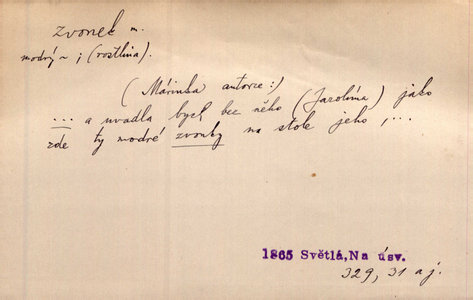 zvonek m.
modrý ~ ; (rostlina).
(Márinka autorce:)
... a uvadla bych bez něho (Jarolíma) jako
zde ty modré zvonky na stole jeho, ...
1865 Světlá, Na úsv.
329, 31 a j.